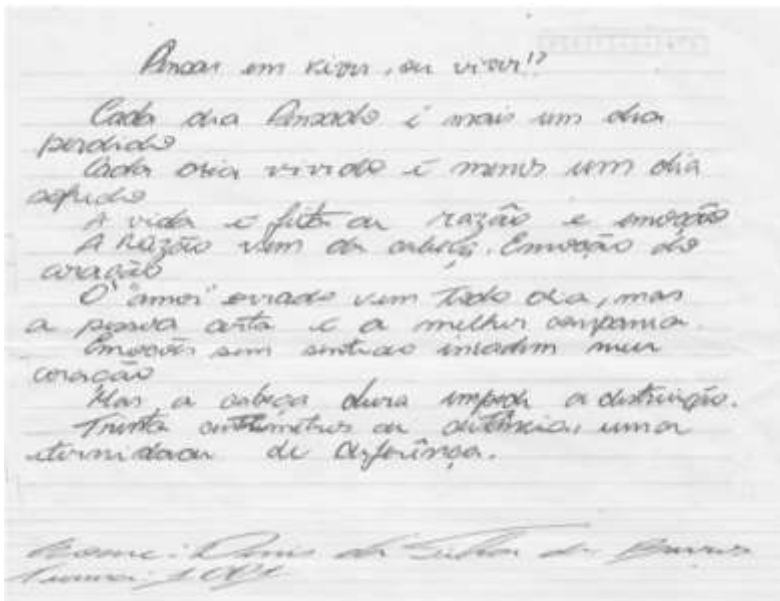 Pensar em viver, ou viver!?
Cada dia Pensado é mais um dia
perdido
Cada dia vivido é menos um dia
sofrido
A vida é feita de razão e emoção
A Razão vem da cabeça. Emoção do
coração
O "amor" errado vem todo dia, mas
a pessoa certa é a melhor compania.
Emoções sem sentido invadem meu
coração
Mas a cabeça dura impede a distruição.
Trinta centímetros de distância, uma
eternidade de diferença.
Nome: Denis da Silva de Barros
Turma: 1001